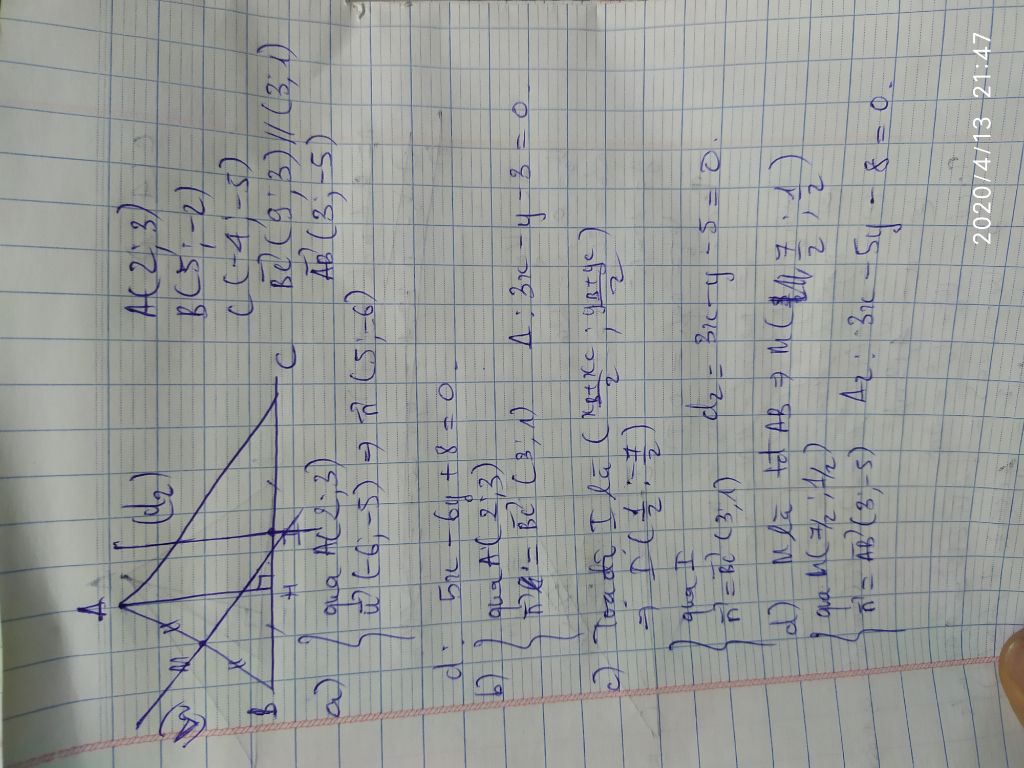 A
(d2)
M
(Δ)
B
H
I
C
A(2;3)
B(5;-2)
C(-4;-5)
BC(9;3)//(3;1)
AB(3;-5)
a) { qua A(2;3)
u(-6;-5) => n(5;-6)
d: 5x-6y+8=0.
b) { qua A(2;3)
n = BC(3;1)
Δ: 3x-y-3=0.
c) Toạ độ I là (xB+xC/2; yB+yC/2)
=> I(1/2; -7/2)
{ qua I
n = BC(3;1)
d2 = 3x-y-5=0.
d) M là tđ AB => M(7/2; 1/2)
{ qua M(7/2; 1/2)
n = AB(3;-5)
Δ2: 3x-5y-8=0.
2020/4/13 21:47